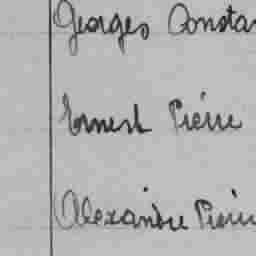 Georges Constan
Ernest Pierre
Alexandre Pierre